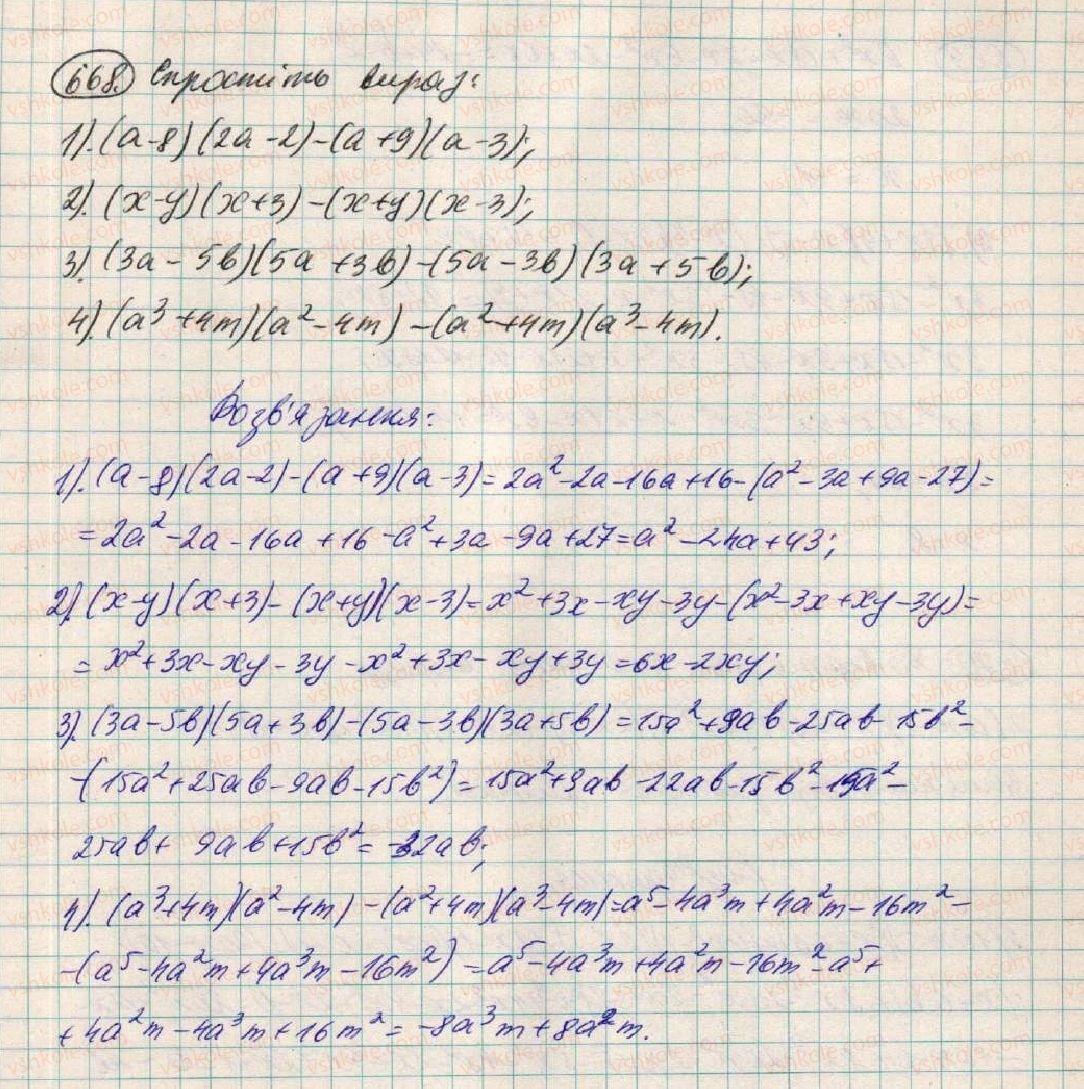 668. Спростіть вираз:
1). (a-8)(2a-2)-(a+9)(a-3);
2). (x-y)(x+3)-(x+y)(x-3);
3). (3a-5b)(5a+3b)-(5a-3b)(3a+5b);
4). (a³+4m)(a²-4m)-(a²+4m)(a³-4m).
Розв'язання:
1). (a-8)(2a-2)-(a+9)(a-3)=2a²-2a-16a+16-(a²-3a+9a-27)=
=2a²-2a-16a+16-a²+3a-9a+27=a²-24a+43;
2). (x-y)(x+3)-(x+y)(x-3)=x²+3x-xy-3y-(x²-3x+xy-3y)=
=x²+3x-xy-3y-x²+3x-xy+3y=6x-2xy;
3). (3a-5b)(5a+3b)-(5a-3b)(3a+5b)=15a²+9ab-25ab-15b²-
-(15a²+25ab-9ab-15b²)=15a²+9ab-22ab-15b²-15a²-
25ab+9ab+15b²=-32ab;
4). (a³+4m)(a²-4m)-(a²+4m)(a³-4m)=a⁵-4a³m+4a²m-16m²-
-(a⁵-4a²m+4a³m-16m²)=a⁵-4a³m+4a²m-16m²-a⁵+
+4a²m-4a³m+16m²=-8a³m+8a²m.